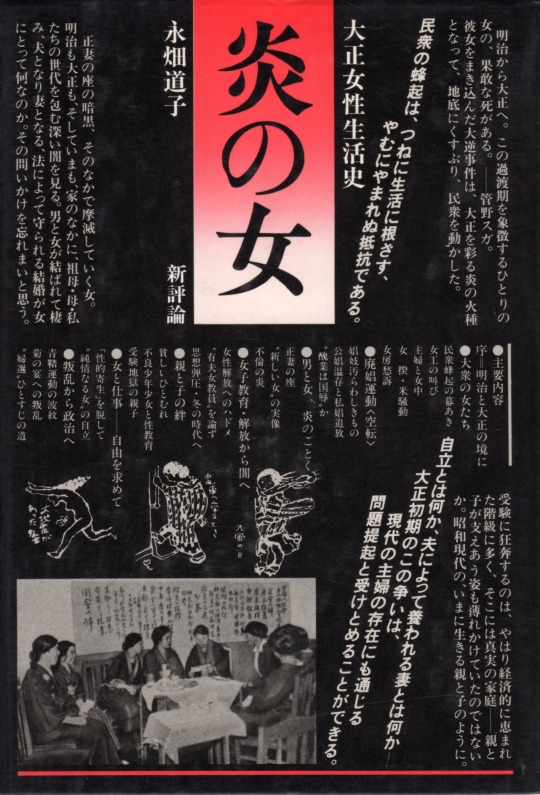 明治から大正へ。この過渡期を象徴するひとりの
女の、果敢な死がある。——管野スガ。
彼女をまき込んだ大逆事件は、大正を彩る炎の火種
となって、地底にくすぶり、民衆を動かした。
民衆の蜂起は、つねに生活に根ざす、
やむにやまれぬ抵抗である。
大正女性生活史
炎の女
永畑道子
新評論
正妻の座の暗黒、そのなかで摩滅していく女。
明治も大正も、そしていまも、家のなかに、祖母・母・私
たちの世代を包む深い闇を見る。男と女が結ばれて棲
み、夫となり妻となる、法によって守られる結婚が女
にとって何なのか。その問いかけを忘れまいと思う。
●主要内容
序—明治と大正の境に
●大衆の女たち
民衆蜂起の幕あき
女工の叫び
主婦と女中
女一揆・米騒動
女房愁訴
●廃娼運動〈空転〉
娼妓汚らわしきもの
公娼温存と私娼追放
“醜業を国辱”か
●男と女、炎のごとく
正妻の座
“新しい女”の実像
不倫の炎
●女子教育・解放から闇へ
女性解放へのハドメ
“有夫女教員”を論ず
思想弾圧・冬の時代へ
●親と子の絆
貧しいひとむれ
不良少年少女と性教育
受験地獄の親子
●女と仕事——自由を求めて
“性的寄生”を脱して
“純情なる女”の自立
●叛乱から政治へ
青鞜運動の波紋
菊の家への叛乱
“婦選”ひとすじの道
受験に狂奔するのは、やはり経済的に恵まれ
た階級に多く、そこには真実の家庭——親と
子が支えあう姿も薄れかけていたのではない
か。昭和現代の、いまに生きる親と子のように。
自立とは何か、夫によって養われる妻とは何か——
大正初期のこの争いは、
現代の主婦の存在にも通じる
問題提起と受けとめることができる。